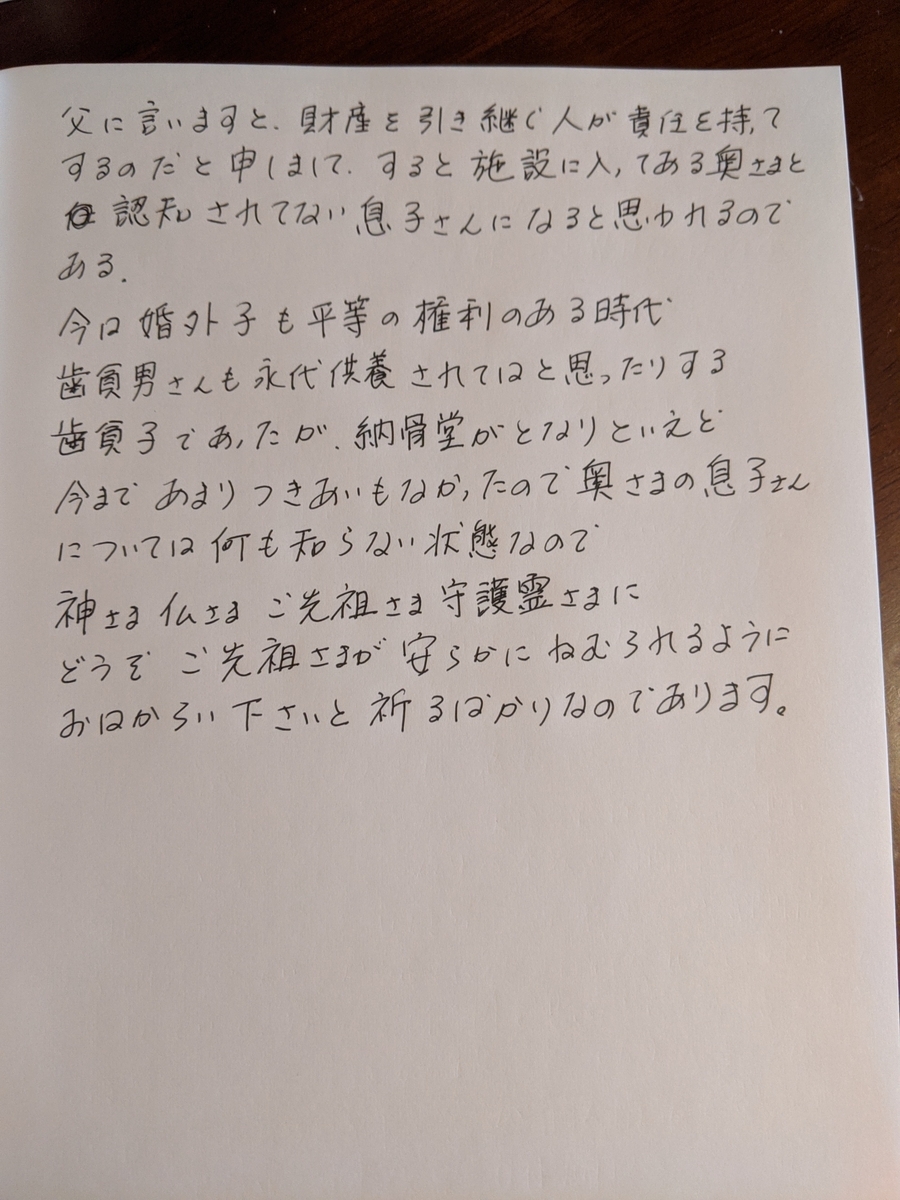 父に言いますと、財産を引き継ぐ人が責任を持って
するのだと申しまして、すると施設に入ってある奥さまと
認知されてない息子さんになると思われるので
ある.
今は婚外子も平等の権利のある時代
歯員男さんも永代供養されてはと思ったりする
歯員子であったが、納骨堂がとなりといえど
今まであまりつきあいもなかったので奥さまの息子さん
については何も知らない状態なので
神さま仏さまご先祖さま守護霊さまに
どうぞご先祖さまが安らかにねむられるように
おはからい下さいと祈るばかりなのであります。